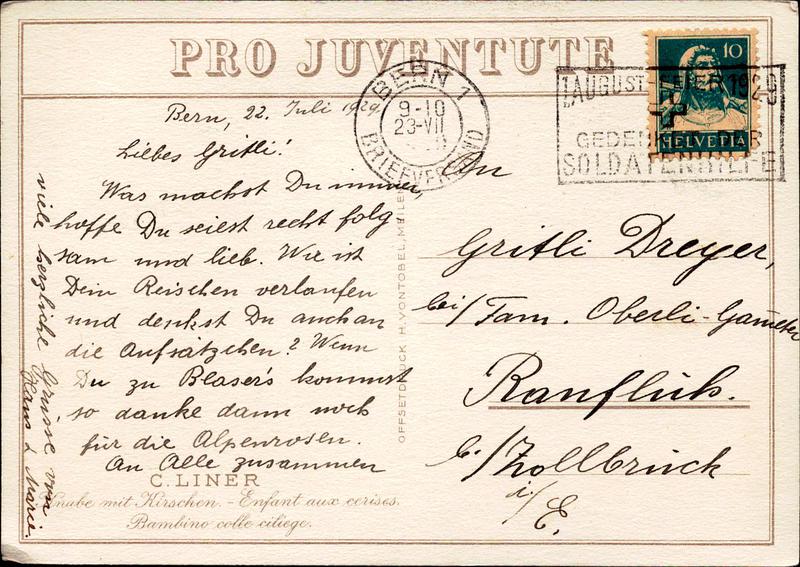 PRO JUVENTUTE
Bern, 22. Juli 1929.
Liebes Gritli!
Was machst Du immer,
hoffe Du seiest recht folg
sam und lieb. Wie ist
Dein Reischen verlaufen
und denkst Du auch an
die Aufsätzchen? Wenn
Du zu Blaser's kommst
so danke dann noch
für die Alpenrosen.
An Alle zusammen
viele herzliche Grüsse von
Hans & Marie.
C. LINER
Knabe mit Kirschen. - Enfant aux cerises.
Bambino colle ciliege.
OFFSETDRUCK H. VONTOBEL, MEILEN
BERN 1
9-10
23·VII
BRIEFVERSAND
10
HELVETIA
1.AUGUST-FEIER 1929
GEDENKET DER
SOLDATENHILFE
An
Gritli Dreyer,
bei/Fam. Oberli-Gameter
Ranflüh.
b./Zollbrück
i/E.